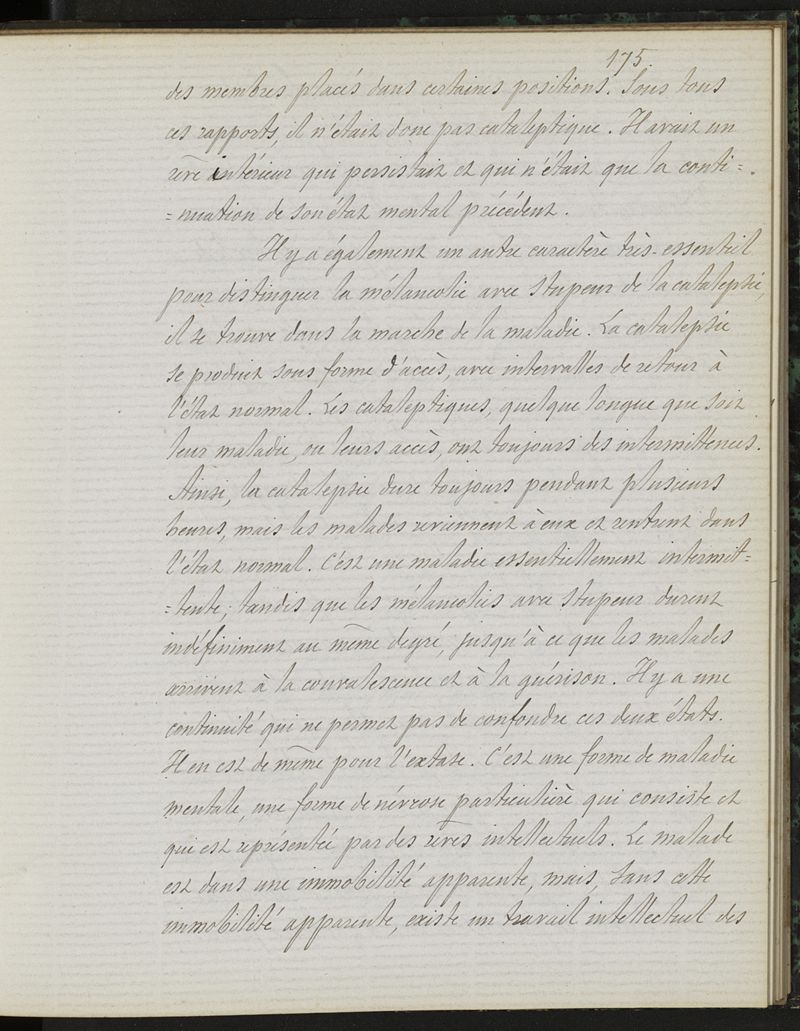 175.
des membres placés dans certaines positions. Sous tous
ces rapports, il n'était donc pas cataleptique. Il avait un
rêve intérieur qui persistait et qui n'était que la conti=
=nuation de son état mental précédent.
Il y a également un autre caractère très-essentiel
pour distinguer la mélancolie avec stupeur de la catalepsie,
il se trouve dans la marche de la maladie. La catalepsie
se produit sous forme d'accès, avec intervalles de retour à
l'état normal. Les cataleptiques, quelque longue que soit
leur maladie, ou leurs accès, ont toujours des intermittences.
Ainsi, la catalepsie dure toujours pendant plusieurs
heures, mais les malades reviennent à eux et rentrent dans
l'état normal. C'est une maladie essentiellement intermit=
=tente; tandis que les mélancolies avec stupeur durent
indéfiniment au même degré, jusqu'à ce que les malades
arrivent à la convalescence et à la guérison. Il y a une
continuité qui ne permet pas de confondre ces deux états.
Il en est de même pour l'extase. C'est une forme de maladie
mentale, une forme de névrose particulière qui consiste et
qui est représentée par des rêves intellectuels. Le malade
est dans une immobilité apparente, mais, sans cette
immobilité apparente, existe un travail intellectuel des